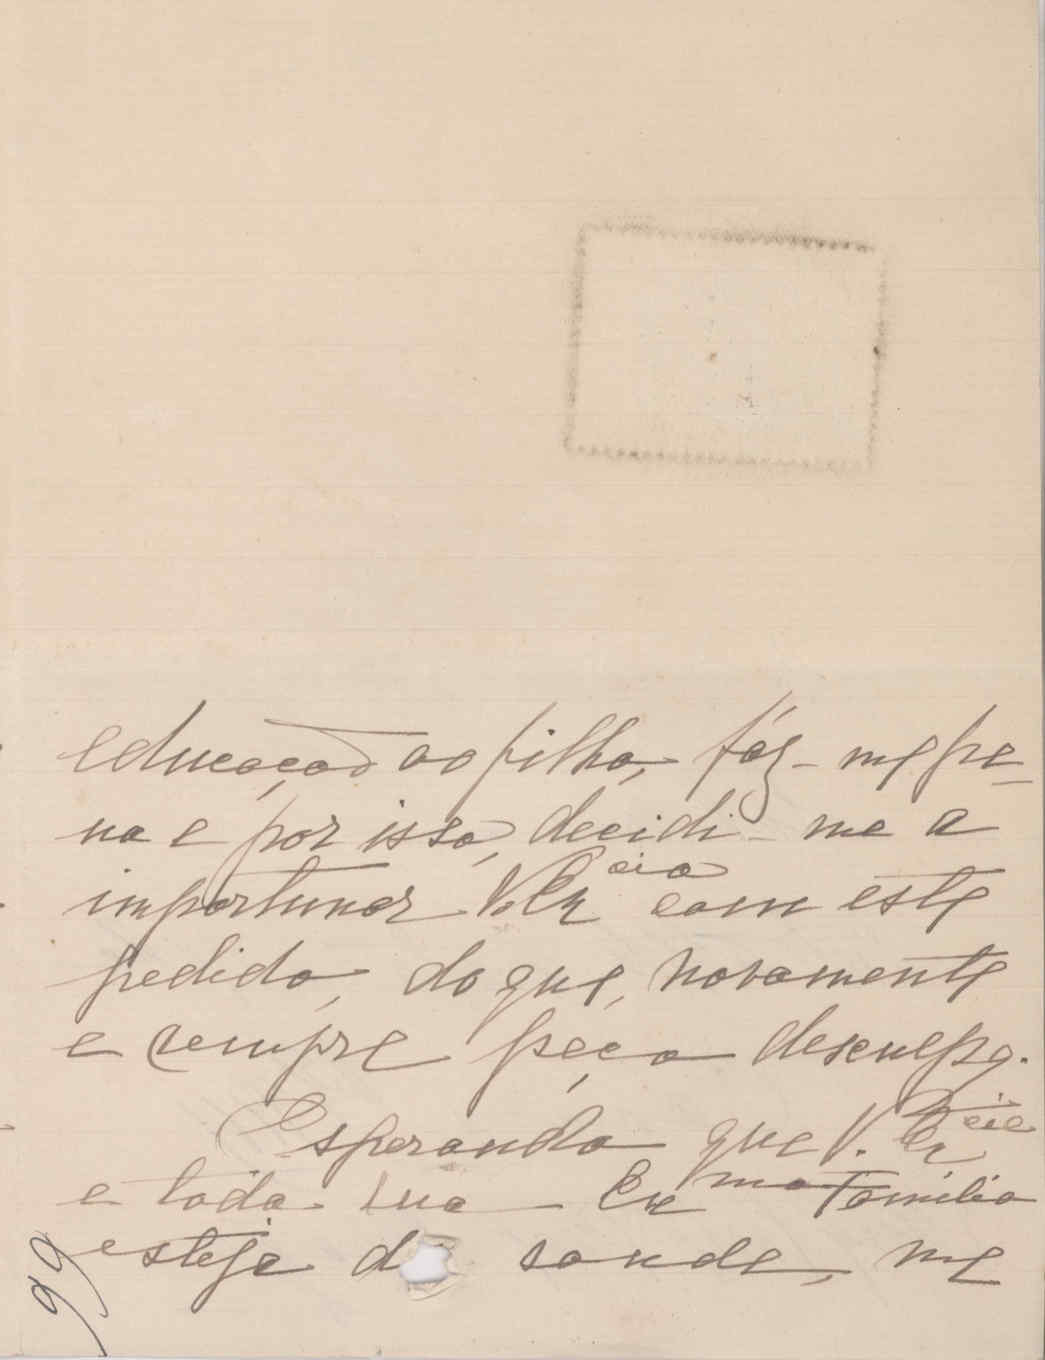 educação ao filho, fáz-me pe-
na e por isso, decidi-me a
importunar V. Ex cia com este
pedido, do que, novamente
e sempre peço desculpa.
Esperando que V. Ex cia
e toda sua Ex ma familia
esteja d saude, me
99